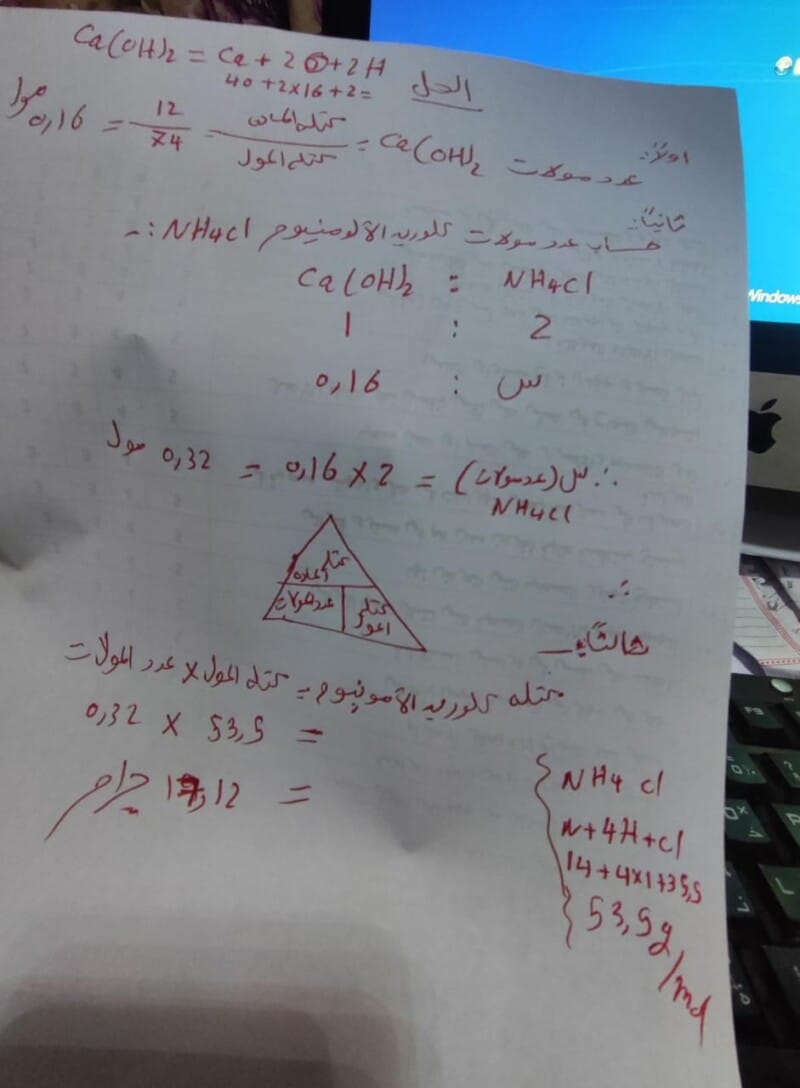 Ca(OH)2 = Ca + 2O + 2H
40 + 2x16 + 2 =
الحل
اولاً:
عدد مولات Ca(OH)2 = كتلة المادة / كتلة المول = 12 / 74 = 0,16 مول
ثانياً:
حساب عدد مولات كلوريد الألومنيوم NH4Cl :-
Ca(OH)2 : NH4Cl
1 : 2
0,16 : س
∴ س (عدد مولات) = 2 × 0,16 = 0,32 مول
NH4Cl
كتلة المادة
عدد المولات
كتلة المول
∴
ثالثاً:
كتلة كلوريد الأمونيوم = كتلة المول × عدد المولات
= 53,5 × 0,32
= 17,12 جرام
NH4 cl
N+4H+cl
14+4x1+35,5
53,5g/mol
Windows
F9
L